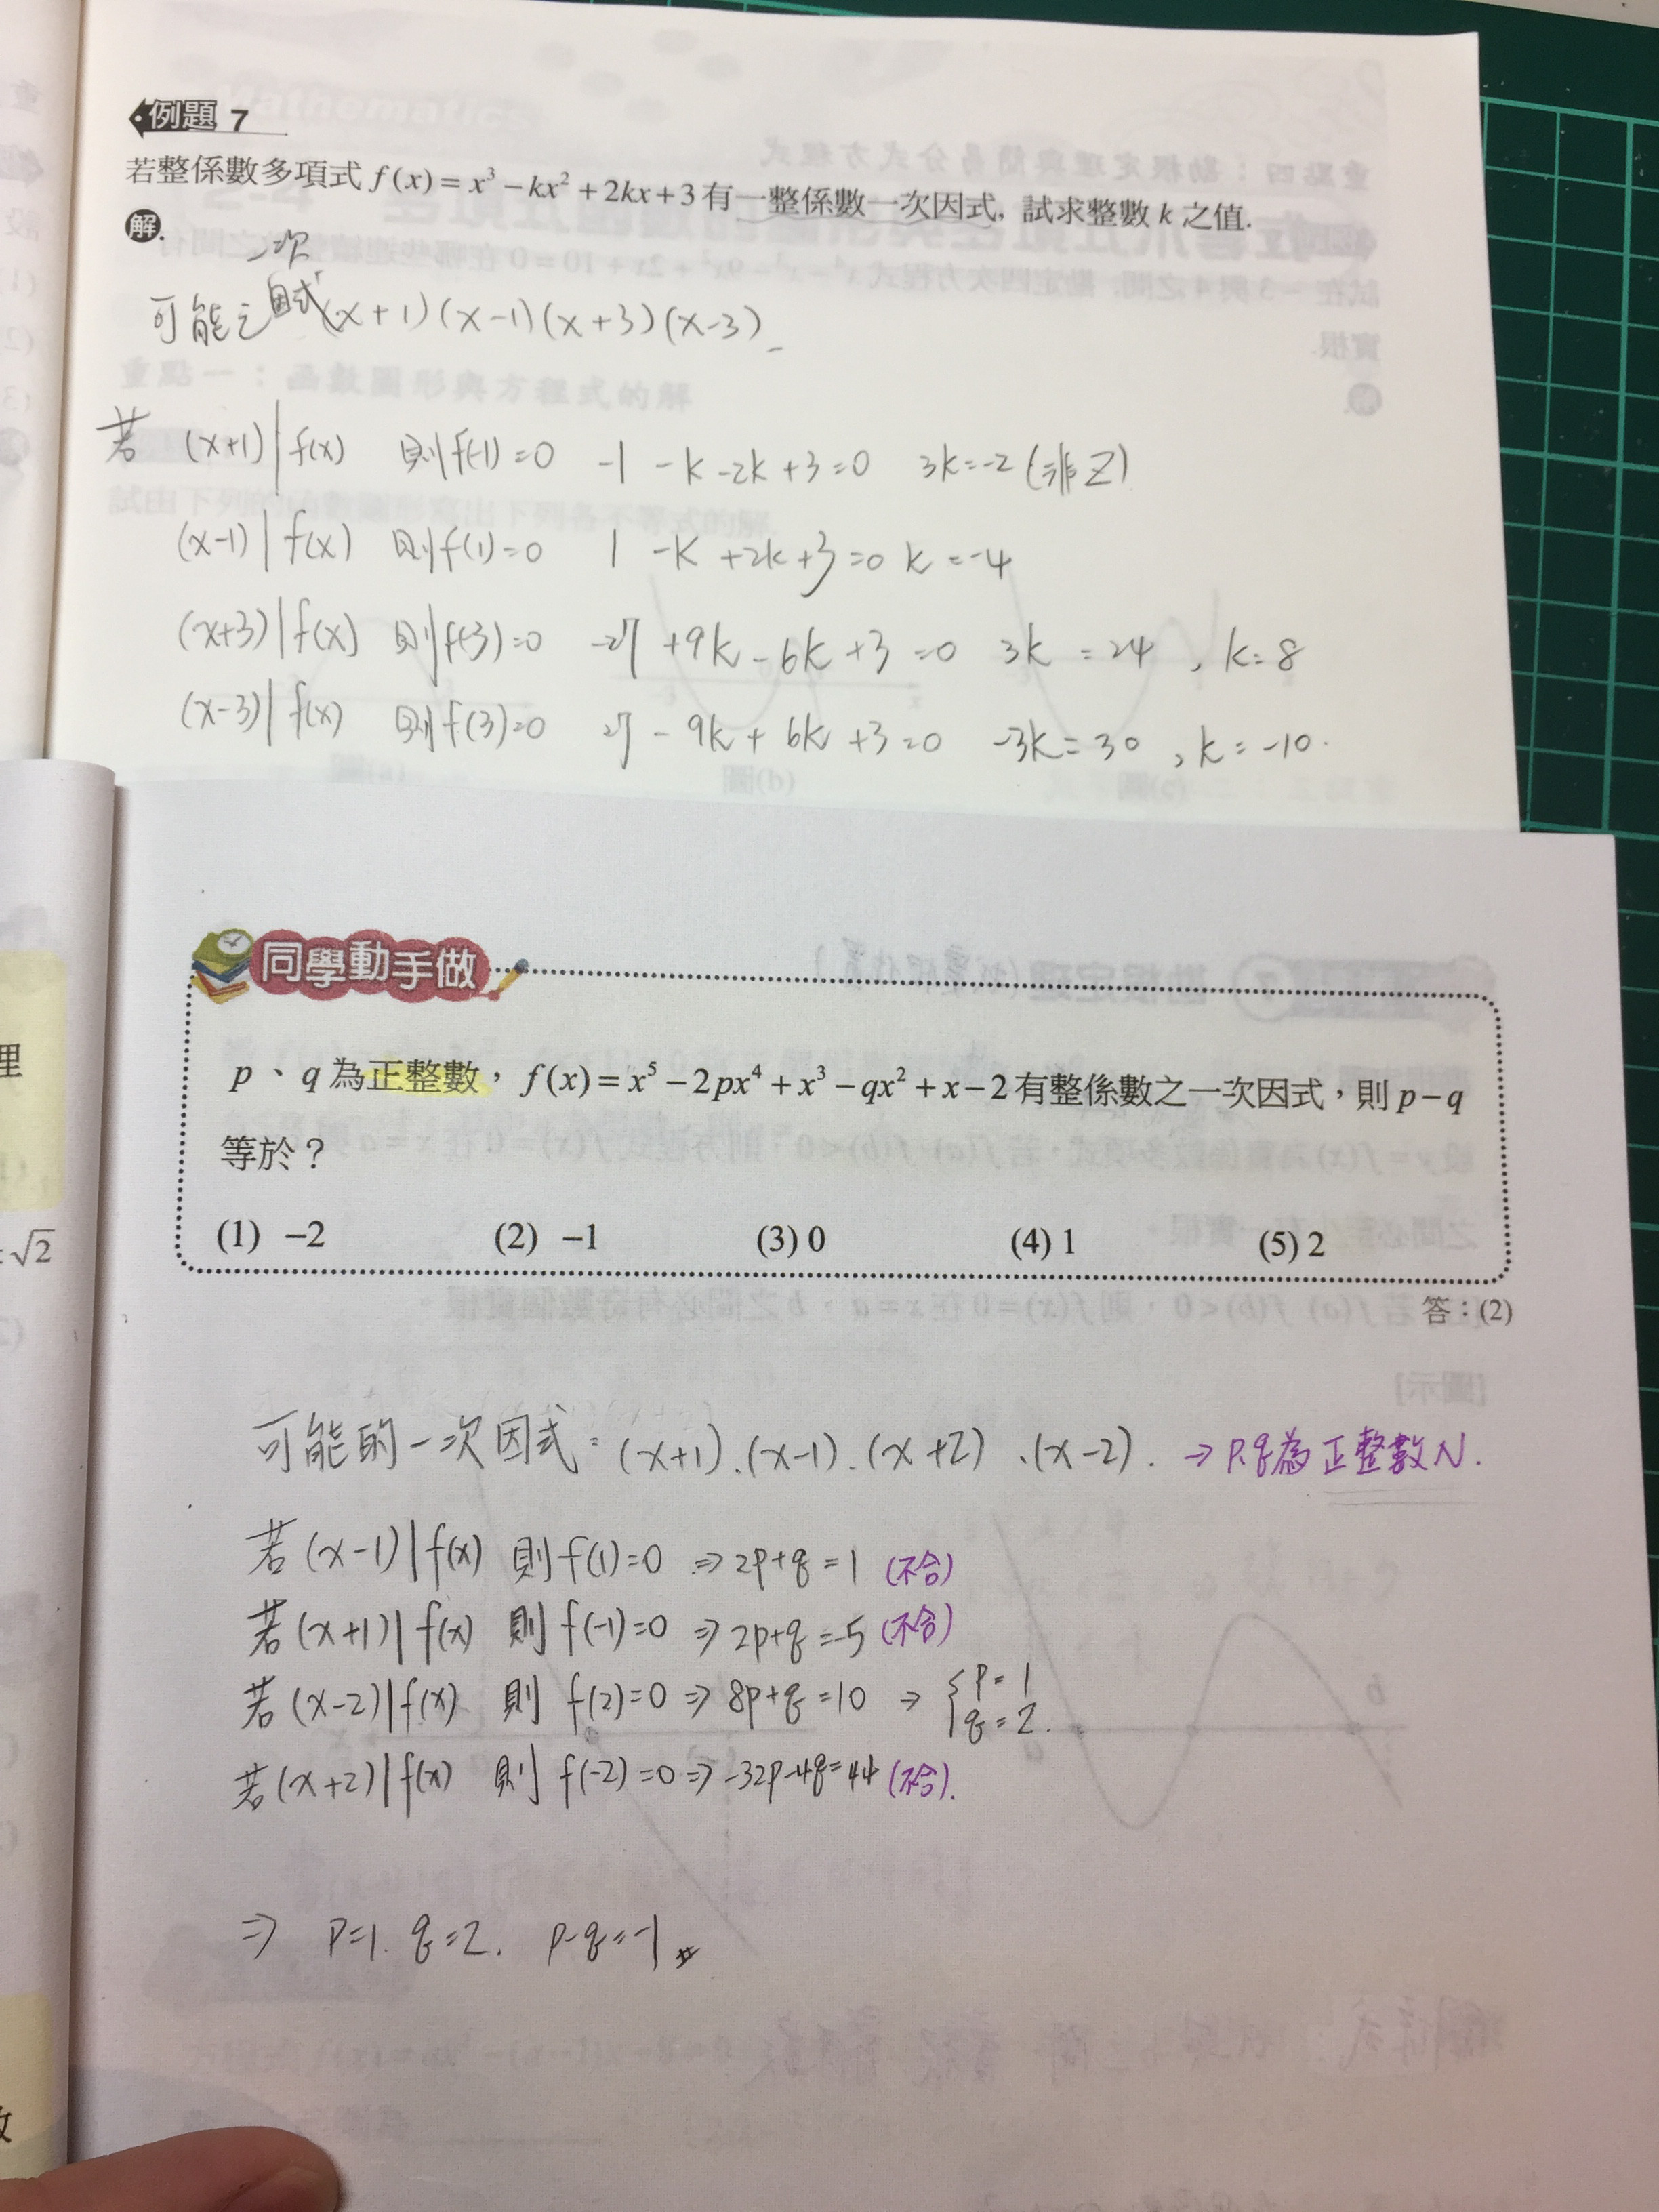 例題 7
若整係數多項式 f(x) = x³ − kx² + 2kx + 3 有一整係數一次因式, 試求整數 k 之值.
解.
一次
可能之因式 (x+1)(x-1)(x+3)(x-3)
若 (x+1)|f(x) 則f(-1)=0 -1 -k -2k +3=0 3k=-2 (非Z)
(x-1)|f(x) 則f(1)=0 1 -k +2k+3=0 k=-4
(x+3)|f(x) 則f(-3)=0 -27 +9k -6k +3 =0 3k = 24 , k=8
(x-3)|f(x) 則f(3)=0 27 - 9k + 6k +3=0 -3k=30 , k=-10.
同學動手做
p、q 為正整數，f(x) = x⁵ − 2px⁴ + x³ − qx² + x − 2 有整係數之一次因式，則 p − q
等於？
(1) −2 (2) −1 (3) 0 (4) 1 (5) 2
答：(2)
可能的一次因式：(x+1).(x-1).(x+2).(x-2). → p.q為正整數N.
若(x-1)|f(x) 則f(1)=0 ⇒ 2p+q=1 (不合)
若(x+1)|f(x) 則f(-1)=0 ⇒ 2p+q=-5 (不合)
若(x-2)|f(x) 則 f(2)=0 ⇒ 8p+q=10 → { p=1
q=2.
若(x+2)|f(x) 則 f(-2)=0 ⇒ -32p-4q=44 (不合).
⇒ p=1. q=2. p-q=-1
理
√2